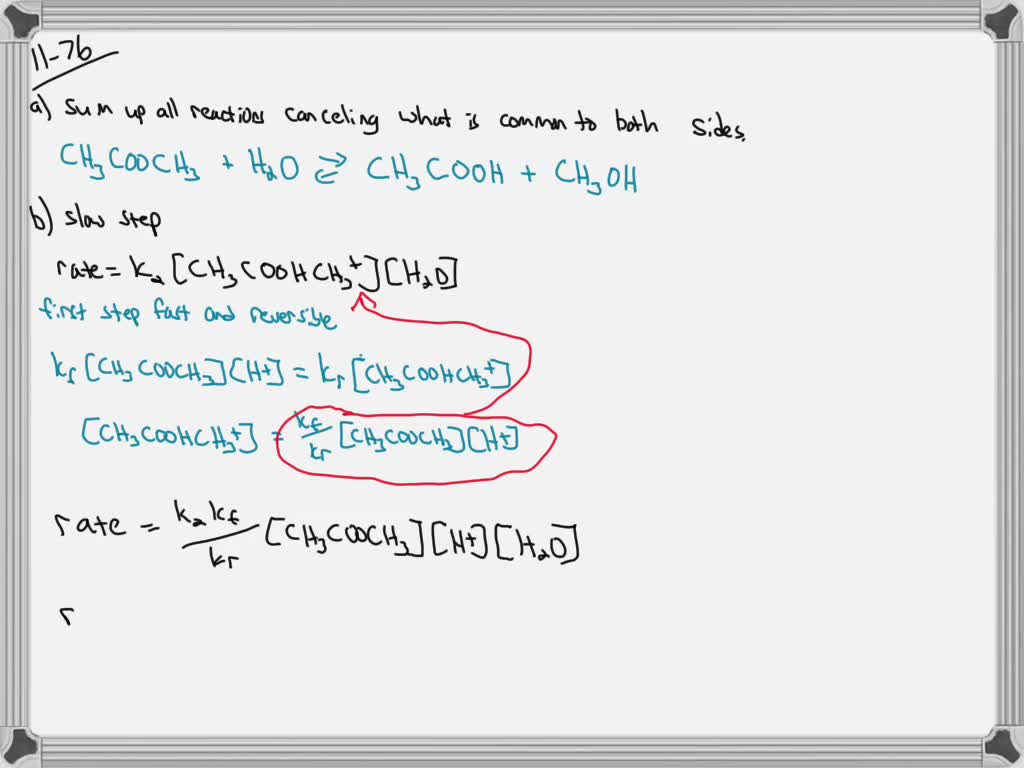 11-76
a) Sum up all reactions canceling what is common to both sides.
CH₃COOCH₃ + H₂O ⇌ CH₃COOH + CH₃OH
b) slow step
rate = k₂[CH₃COOHCH₃⁺][H₂O]
first step fast and reversible
kf[CH₃COOCH₃][H⁺] = kr[CH₃COOHCH₃⁺]
[CH₃COOHCH₃⁺] = kf/kr [CH₃COOCH₃][H⁺]
rate = k₂kf/kr [CH₃COOCH₃][H⁺][H₂O]
r